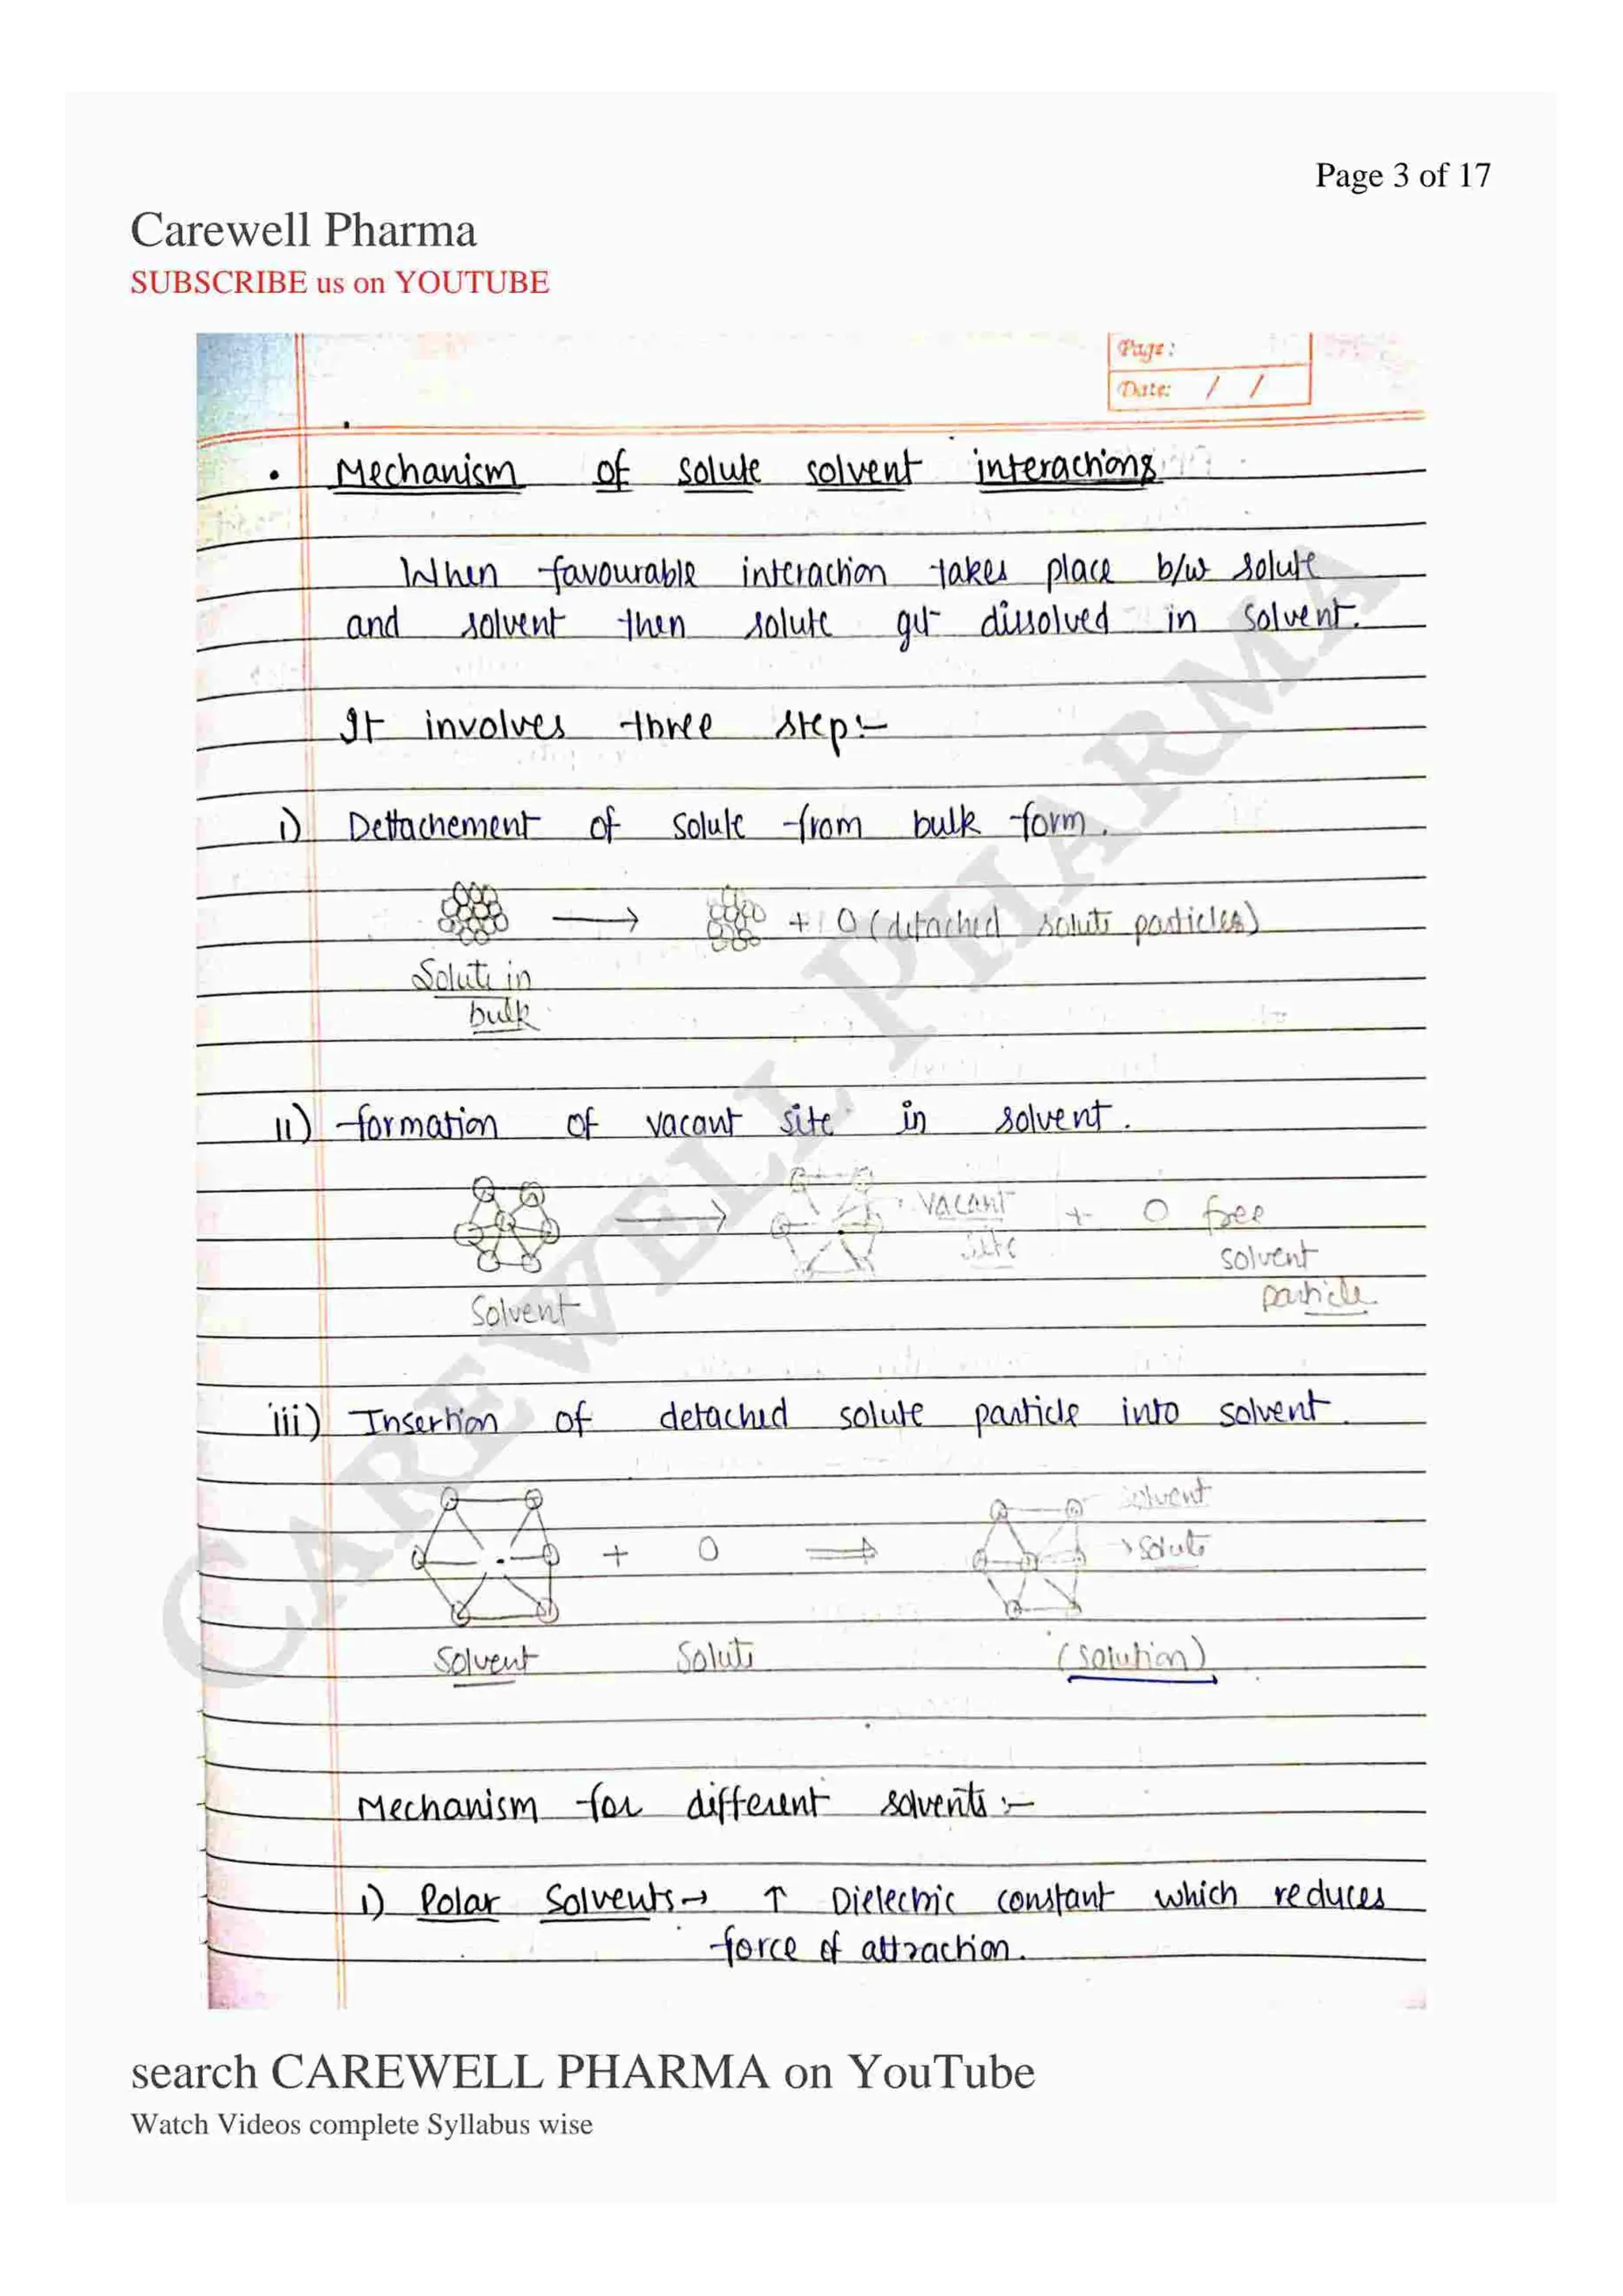 Page 3 of 17
Carewell Pharma
SUBSCRIBE us on YOUTUBE
Page:
Date: / /
• Mechanism of solute solvent interactions
When favourable interaction takes place b/w solute
and solvent then solute get dissolved in solvent.
It involves three step:-
i) Dettachement of solute from bulk form.
+ O (detached solute particles)
Solute in
bulk
ii) formation of vacant site in solvent.
vacant + O free
site solvent
particle
Solvent
iii) Insertion of detached solute particle into solvent.
solvent
+ O ⇒ → solute
Solvent Solute (solution)
Mechanism for different solvents :-
i) Polar Solvents → ↑ Dielectric constant which reduces
force of attraction.
CAREWELL PHARMA
search CAREWELL PHARMA on YouTube
Watch Videos complete Syllabus wise